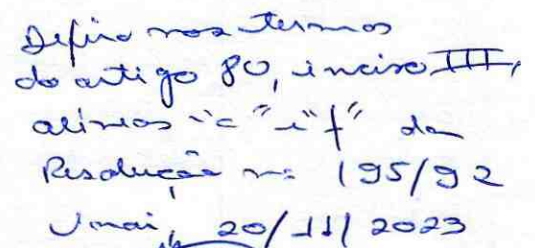 Defiro nos termos
do artigo 80, inciso III,
alíneas "c" e "f" da
Resolução nº 195/92
Unaí, 20/11/2023